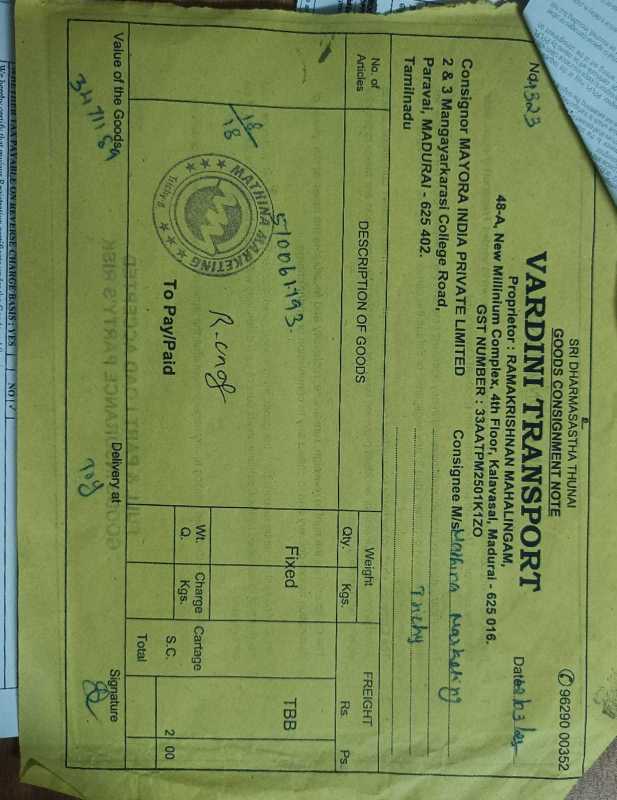 SRI DHARMASASTHA THUNAI
GOODS CONSIGNMENT NOTE
✆ 96290 00352
VARDINI TRANSPORT
Proprietor : RAMAKRISHNAN MAHALINGAM,
48-A, New Millinium Complex, 4th Floor, Kalavasal, Madurai - 625 016.
GST NUMBER : 33AATPM2501K1ZO
No. 4323
Date
Consignor MAYORA INDIA PRIVATE LIMITED
2 & 3 Mangayarkarasi College Road,
Paravai, MADURAI - 625 402.
Tamilnadu
Consignee M/s Mathina Marketing
Trichy
No. of Articles
DESCRIPTION OF GOODS
Weight
Qty.
Kgs.
FREIGHT
Rs.
Ps.
510061493.
Fixed
TBB
18/18
MATHINA MARKETING
Trichy-8.
To Pay/Paid
Wt. Q.
Charge Kgs.
Cartage
S.C.
2 00
Total
Value of the Goods
347118
Delivery at
Signature
NO